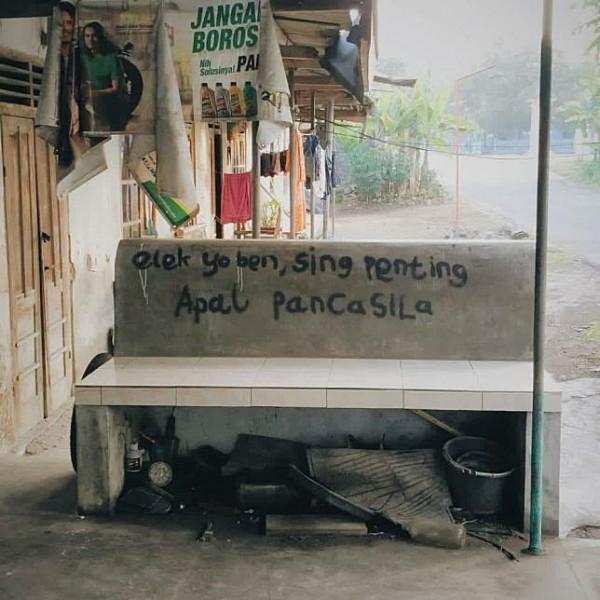 JANGA
BOROS
Nih
Solusinya! PA
elek yo ben, sing penting
Apal PancaSILa